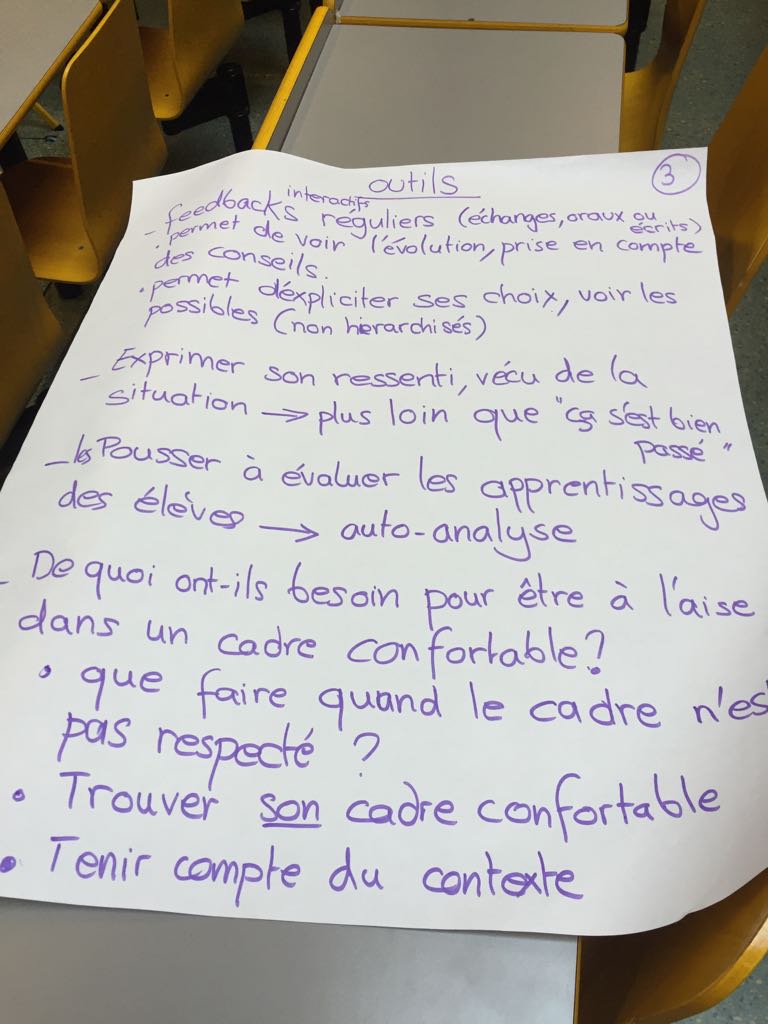 outils
3
interactifs
- feedbacks réguliers (échanges, oraux ou
écrits)
• permet de voir l'évolution, prise en compte
des conseils.
• permet d'éxpliciter ses choix, voir les
possibles (non hierarchisés)
- Exprimer son ressenti, vécu de la
situation → plus loin que "ça s'est bien
passé"
- les Pousser à évaluer les apprentissages
des élèves → auto-analyse
- De quoi ont-ils besoin pour être à l'aise
dans un cadre confortable?
• que faire quand le cadre n'es
pas respecté ?
• Trouver son cadre confortable
• Tenir compte du contexte